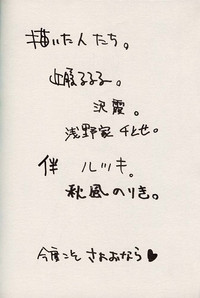 描いた人たち。
止暇るるる。
沢霞。
浅野家 4とせ。
伴 ルツキ。
秋風のりき。
今度こそ さよおなら♥